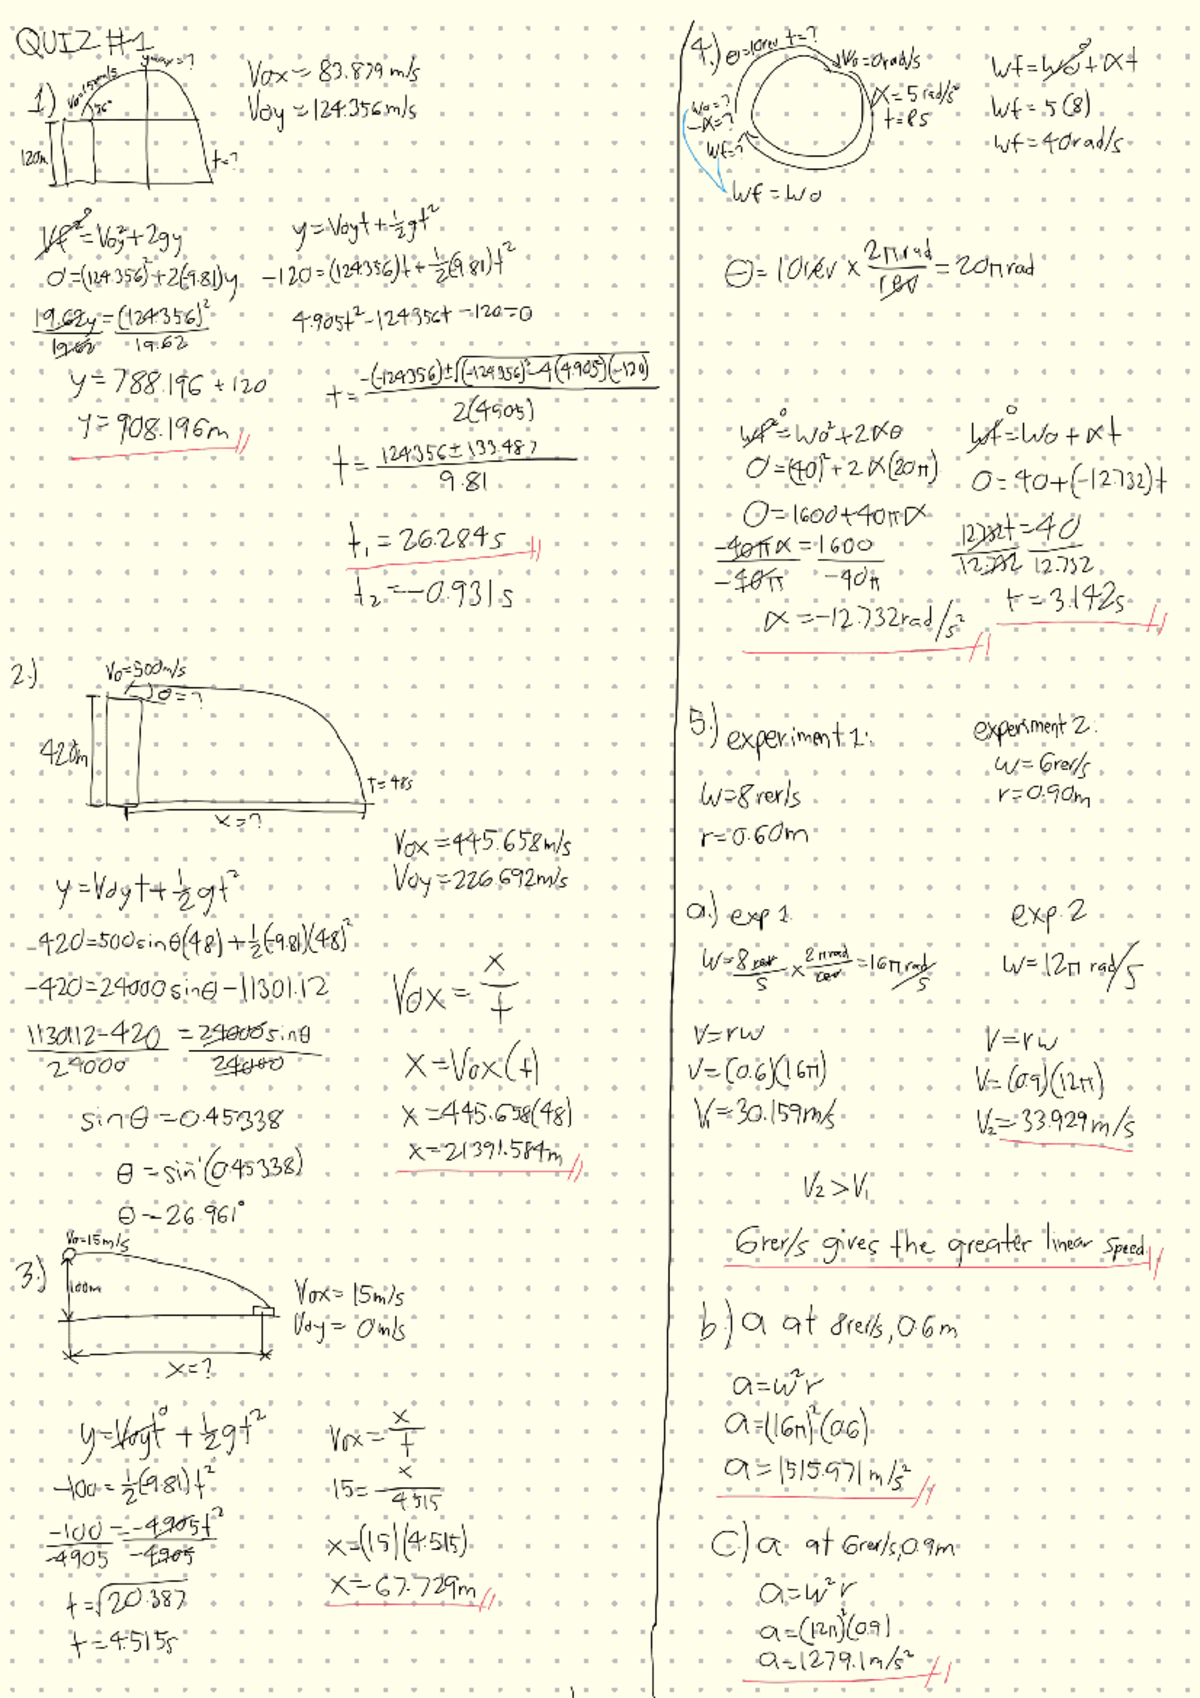 QUIZ #1
1.)
Vo=150m/s
56°
ymax=?
120m
t=?
Vox=83.879 m/s
Voy=124.356m/s
Vf²=Voy²+2gy
0
0=(124.356)²+2(-9.81)y
19.62y=(124.356)²
19.62 19.62
y=788.196+120
y=908.196m
y=Voyt+½gt²
-120=(124.356)t+½(-9.81)t²
4.905t²-124.356t-120=0
t=-(-124.356)±√(-124.356)²-4(4.905)(-120)
2(4.905)
t=124.356±133.487
9.81
t₁=26.284s
t₂=-0.931s
2.)
Vo=500m/s
θ=?
420m
t=48s
x=?
Vox=445.658m/s
Voy=226.692m/s
y=Voyt+½gt²
-420=500sinθ(48)+½(-9.81)(48)²
-420=24000sinθ-11301.12
11301.12-420=24000sinθ
24000 24000
sinθ=0.45338
θ=sin⁻¹(0.45338)
θ=26.961°
Vox=x/t
x=Vox(t)
x=445.658(48)
x=21391.584m
3.)
Vo=15m/s
100m
x=?
Vox=15m/s
Voy=0m/s
y=Voyt+½gt²
0
-100=½(-9.81)t²
-100=-4.905t²
-4.905 -4.905
t=√20.387
t=4.515s
Vox=x/t
15=x/4.515
x=(15)(4.515)
x=67.729m
4.)
θ=10rev t=?
Wo=0rad/s
α=5rad/s²
t=8s
Wo=?
-α=?
Wf=?
Wf=Wo
Wf=Wo+αt
0
Wf=5(8)
Wf=40rad/s
θ=10rev×2πrad/rev=20πrad
Wf²=Wo²+2αθ
0
0=(40)²+2α(20π)
0=1600+40πα
-40πα=1600
-40π -40π
α=-12.732rad/s²
Wf=Wo+αt
0
0=40+(-12.732)t
12.732t=40
12.732 12.732
t=3.142s
5.)
experiment 1:
W=8rev/s
r=0.60m
experiment 2:
W=6rev/s
r=0.90m
a.) exp 1
W=8rev/s×2πrad/rev=16πrad/s
V=rw
V=(0.6)(16π)
V₁=30.159m/s
exp 2
W=12π rad/s
V=rw
V=(0.9)(12π)
V₂=33.929m/s
V₂>V₁
6rev/s gives the greater linear speed
b.) a at 8rev/s, 0.6m
a=w²r
a=(16π)²(0.6)
a=1515.971m/s²
C.) a at 6rev/s, 0.9m
a=w²r
a=(12π)²(0.9)
a=1279.1m/s²